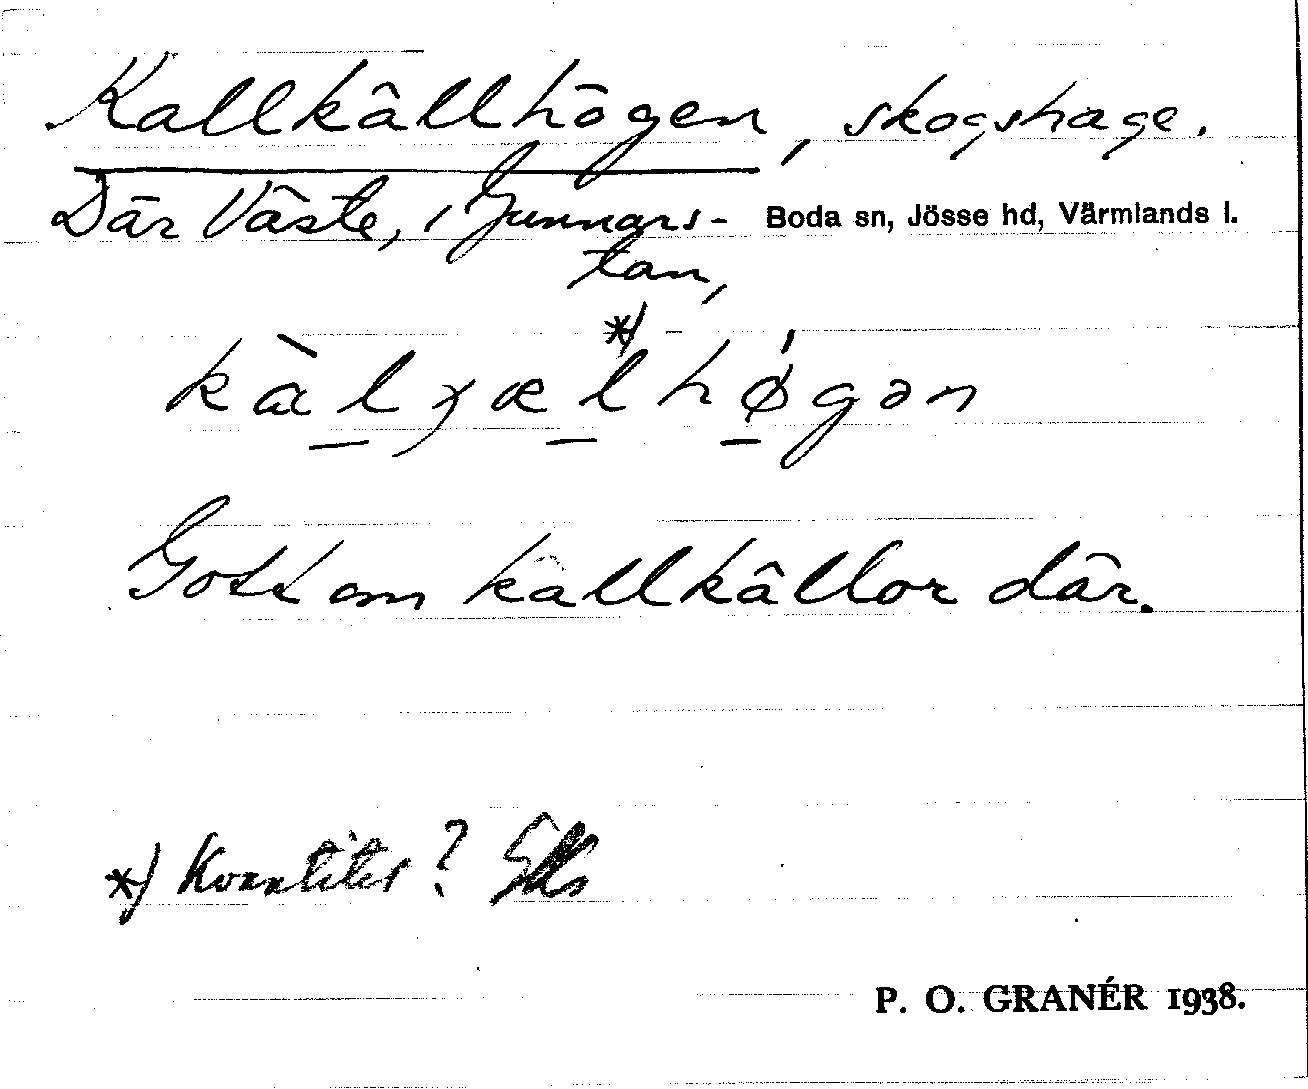 Kallkällhögen, skogshage.
Där Väste, i Gunnars- Boda sn, Jösse hd, Värmlands l.
tan,
*)
kàlχælhǿgən
Gott om kallkällor där.
*) Kvantitet?
P. O. GRANÉR 1938.